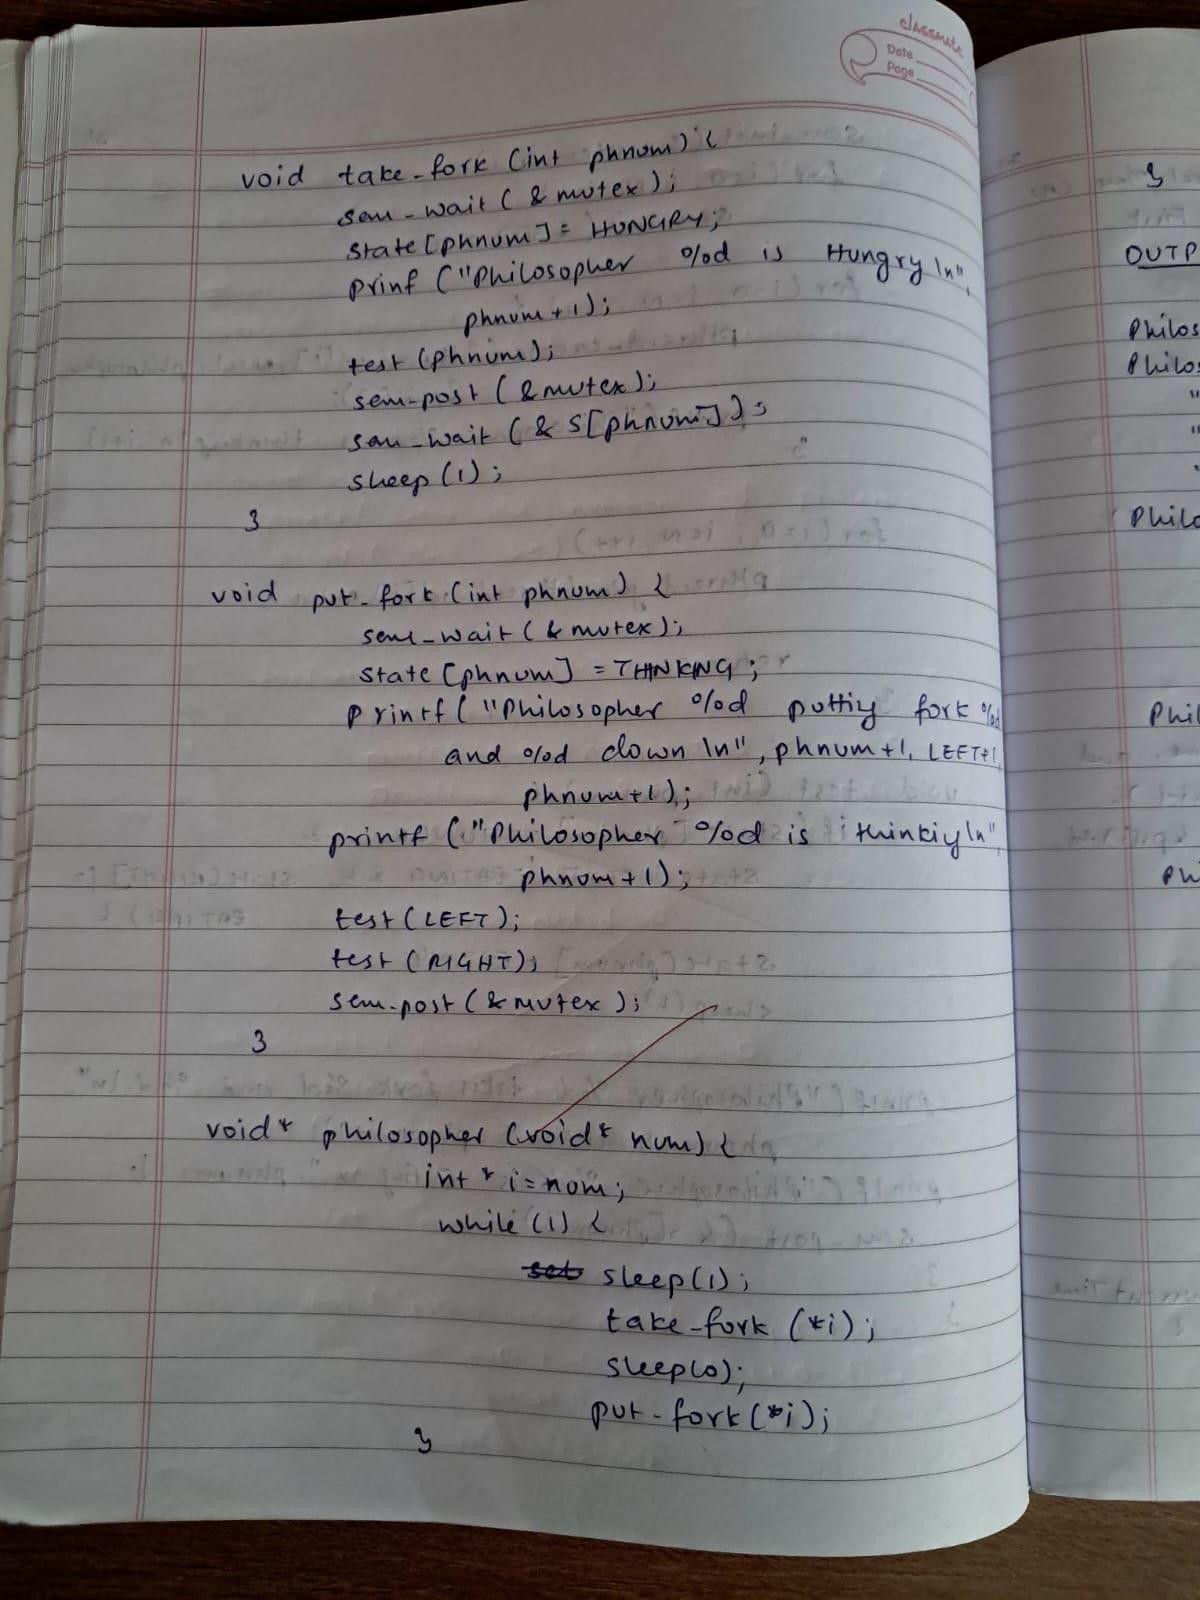 classmate
Date
Page
void take-fork (int phnum) {
sem-wait ( & mutex);
state [phnum] = HUNGRY;
prinf ("Philosopher %d is Hungry \n",
phnum+1);
test (phnum);
sem-post (&mutex);
sem-wait (& S[phnum]);
sleep (1);
}
void put-fork (int phnum) {
sem-wait (& mutex);
state [phnum] = THINKING;
printf ("Philosopher %d puttiy fork %d
and %d down \n", phnum+1, LEFT+1,
phnum+1);
printf ("Philosopher %d is thinkiy\n",
phnum+1);
test (LEFT);
test (RIGHT);
sem-post (& mutex);
}
void* philosopher (void* num) {
int * i = num;
while (1) {
sleep(1);
take-fork (*i);
sleep(0);
put-fork (*i);
}
}
OUTP
Philos
Philos
"
"
Philo
Phil
Ph